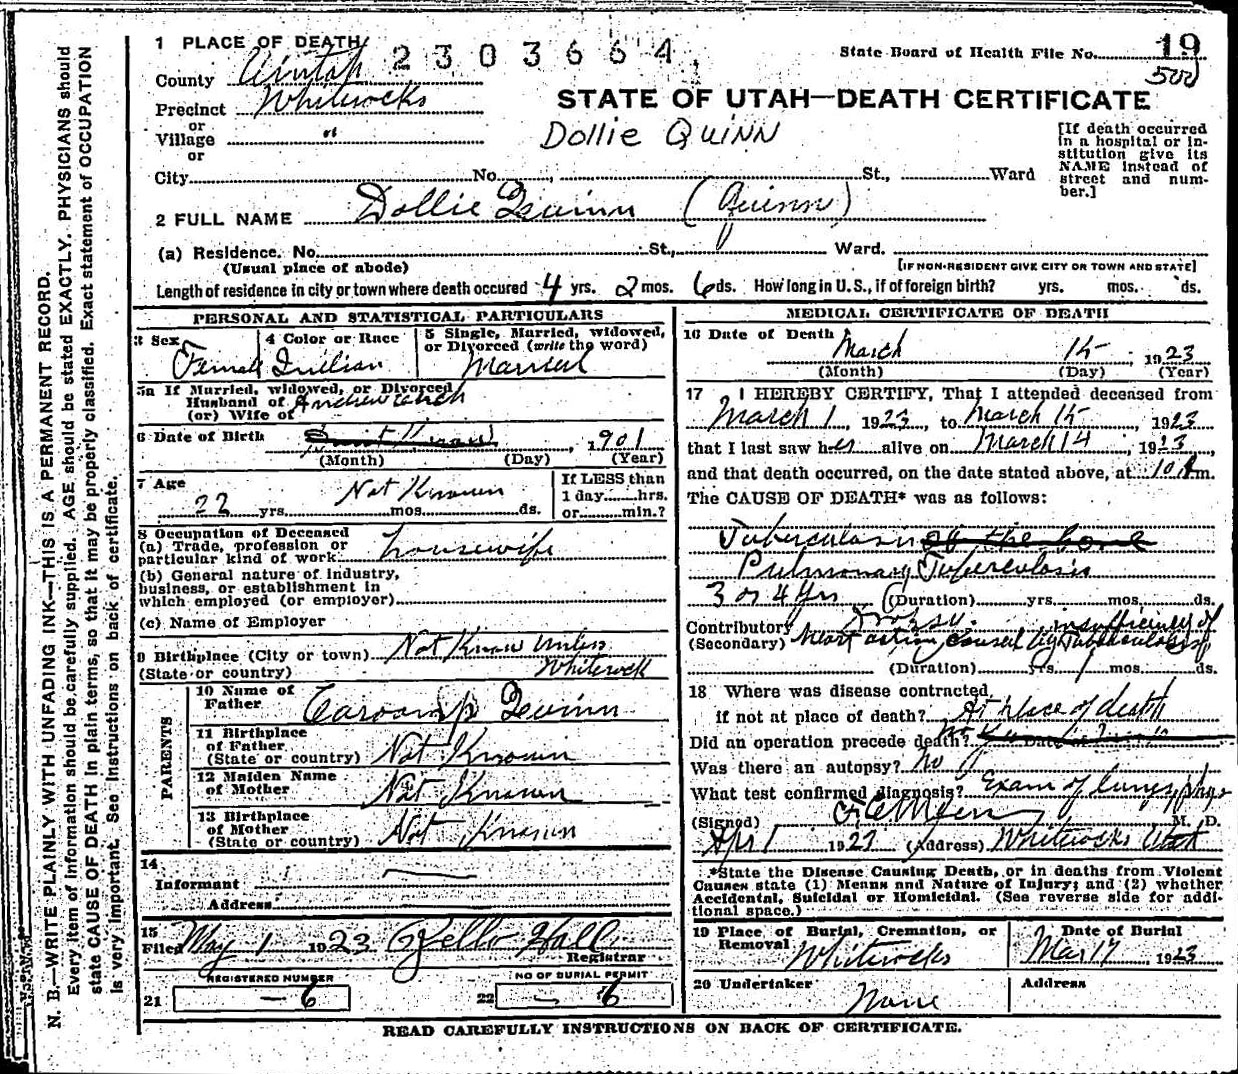 N. B.—WRITE PLAINLY WITH UNFADING INK—THIS IS A PERMANENT RECORD.
Every item of information should be carefully supplied. AGE should be stated EXACTLY. PHYSICIANS should
state CAUSE OF DEATH in plain terms, so that it may be properly classified. Exact statement of OCCUPATION
is very important. See instructions on back of certificate.
1 PLACE OF DEATH 2303664
State Board of Health File No. 19
500
County Uintah
Precinct Whiterocks
or
Village "
or
STATE OF UTAH—DEATH CERTIFICATE
Dollie Quinn
[If death occurred
in a hospital or in-
stitution give its
NAME instead of
street and num-
ber.]
City No. , St., Ward
2 FULL NAME Dollie Quinn (Quinn)
(a) Residence. No. St., Ward.
(Usual place of abode) [IF NON-RESIDENT GIVE CITY OR TOWN AND STATE]
Length of residence in city or town where death occured 4 yrs. 2 mos. 6 ds. How long in U.S., if of foreign birth? yrs. mos. ds.
PERSONAL AND STATISTICAL PARTICULARS
3 Sex Female
4 Color or Race Indian
5 Single, Married, widowed,
or Divorced (write the word)
Married
5a If Married, widowed, or Divorced
Husband of Andrew
(or) Wife of
6 Date of Birth , 1901
(Month) (Day) (Year)
7 Age Not Known
22 yrs. mos. ds.
If LESS than
1 day hrs.
or min.?
8 Occupation of Deceased
(a) Trade, profession or
particular kind of work housewife
(b) General nature of industry,
business, or establishment in
which employed (or employer)
(c) Name of Employer
9 Birthplace (City or town) Not Know Unless
(State or country) Whiterock
PARENTS
10 Name of
Father Quinn
11 Birthplace
of Father
(State or country) Not Known
12 Maiden Name
of Mother Not Known
13 Birthplace
of Mother
(State or country) Not Known
14
Informant
Address
15
Filed May 1 1923 Hall
Registrar
REGISTERED NUMBER
21 — 6
NO OF BURIAL PERMIT
22 — 6
MEDICAL CERTIFICATE OF DEATH
16 Date of Death March 15, 1923
(Month) (Day) (Year)
17 I HEREBY CERTIFY, That I attended deceased from
March 1, 1923, to March 15, 1923
that I last saw her alive on March 14, 1923,
and that death occurred, on the date stated above, at 10 A m.
The CAUSE OF DEATH* was as follows:
Tuberculosis of the bone
Pulmonary Tuberculosis
3 or 4 yrs (Duration) yrs. mos. ds.
Contributory Dropsy. insufficiency of
(Secondary) heart action caused by Tuberculosis
(Duration) yrs. mos. ds.
18 Where was disease contracted
if not at place of death? At place of death
Did an operation precede death? no
Was there an autopsy? no
What test confirmed diagnosis? Exam of lungs, phys
(Signed) M. D.
Apr 1 1923 (Address) Whiterocks Utah
*State the Disease Causing Death, or in deaths from Violent
Causes state (1) Means and Nature of Injury; and (2) whether
Accidental, Suicidal or Homicidal. (See reverse side for addi-
tional space.)
19 Place of Burial, Cremation, or
Removal Whiterocks
Date of Burial
Mar 17 1923
20 Undertaker None
Address
READ CAREFULLY INSTRUCTIONS ON BACK OF CERTIFICATE.